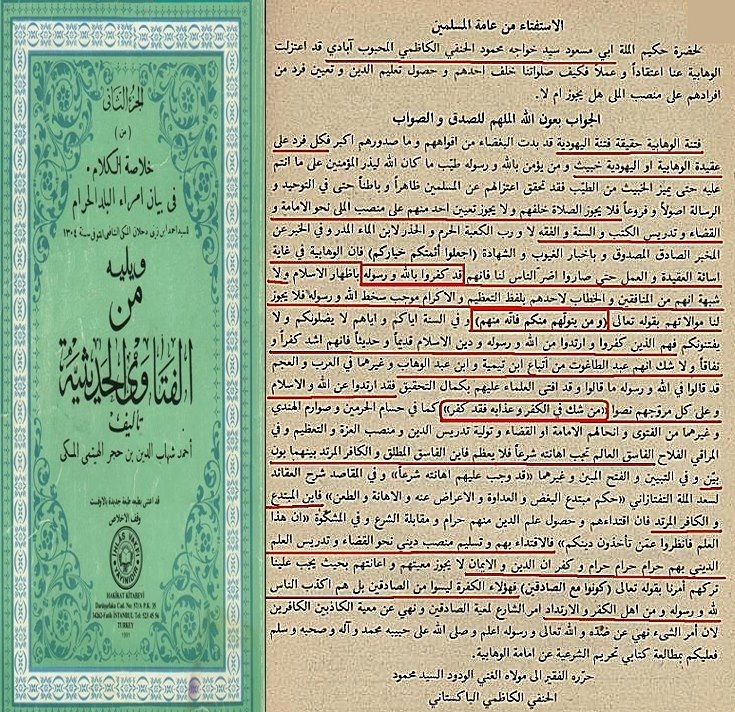 الجزء الثاني
(من)
خلاصة الكلام
في بيان امراء البلد الحرام
للسيد احمد ابن زيني دحلان المكي الشافعي المتوفى سنة ١٣٠٤
ويليه
من
الفتاوى الحديثية
تأليف
أحمد شهاب الدين بن حجر الهيتمي المكي
قد اعتنى بطبعه طبعة جديدة بالاوفست
وقف الاخلاص
IHLAS VAKFI
YAYINIDIR
HAKİKAT KİTABEVİ
Darüşşefaka Cad. No: 57/A P.K. 35
34262-Fatih İSTANBUL Tel: 523 45 56
TURKEY
1991
الاستفتاء من عامة المسلمين
لحضرة حكيم الملة ابي مسعود سيد خواجه محمود الحنفي الكاظمي المحبوب آبادي قد اعتزلت
الوهابية عنا اعتقاداً و عملاً فكيف صلواتنا خلف احدهم و حصول تعليم الدين و تعيين فرد من
افرادهم على منصب الملى هل يجوز ام لا.
الجواب بعون الله الملهم للصدق و الصواب
فتنة الوهابية حقيقة فتنة اليهودية قد بدت البغضاء من افواههم و ما صدورهم اكبر فكل فرد على
عقيدة الوهابية او اليهودية خبيث و من يؤمن بالله و رسوله طيّب ما كان الله ليذر المؤمنين على ما انتم
عليه حتى يميز الخبيث من الطيّب فقد تحقق اعتزالهم عن المسلمين ظاهراً و باطناً حتى في التوحيد و
الرسالة اصولاً و فروعاً فلا يجوز الصلاة خلفهم و لا يجوز تعيين احد منهم على منصب الملى نحو الامامة و
القضاء و تدريس الكتب و السنة و الفقه لا و رب الكعبة الحرم و الحذر لابن الماء المدر و في الخبر عن
المخبر الصادق المصدوق و باخبار الغيوب و الشهادة (اجعلوا أئمتكم خياركم) فان الوهابية في غاية
اسائة العقيدة و العمل حتى صاروا اضرّ الناس لنا فانهم قد كفروا بالله و رسوله باظهار الاسلام و لا
شبهة انهم من المنافقين و الخطاب لاحدهم بلفظ التعظيم و الاكرام موجب سخط الله و رسوله فلا يجوز
لنا موالاتهم بقوله تعالى (و من يتولّهم منكم فانّه منهم) و في السنة اياكم و اياهم لا يضلونكم و لا
يفتنونكم فهم الذين كفروا و ارتدوا من الله و رسوله و دين الاسلام قديماً و حديثاً فانهم اشد كفراً و
نفاقاً و لا شك انهم عبد الطاغوت من أتباع ابن تيمية و ابن عبد الوهاب و غيرهما في العرب و العجم
قد قالوا في الله و رسوله ما قالوا و قد افتى العلماء عليهم بكمال التحقيق فقد ارتدوا عن الله و الاسلام
و على كل مروجهم نصوا «من شك في الكفر و عذابه فقد كفر» كما في حسام الحرمين و صوارم الهندي
و غيرهما من الفتوى و انحالهم الامامة او القضاء و تولية تدريس الدين و منصب العزة و التعظيم و في
المراقي الفلاح الفاسق العالم تجب اهانته شرعاً فلا يعظم فاين الفاسق المطلق و الكافر المرتد بينهما بون
بيّن و في التبيين و الفتح المبين و غيرهما «قد وجب عليهم اهانته شرعاً» و في المقاصد شرح العقائد
لسعد الملة التفتازاني «حكم مبتدع البغض و العداوة و الاعراض عنه و الاهانة و الطعن» فاين المبتدع
و الكافر المرتد فان اقتداءهم و حصول علم الدين منهم حرام و مقابلة الشرع و في المشكوة «ان هذا
العلم فانظروا عمّن تأخذون دينكم» فالاقتداء بهم و تسليم منصب ديني نحو القضاء و تدريس العلم
الديني بهم حرام حرام حرام و كفر ان الدين و الايمان لا يجوز معيتهم و اعانتهم بحيث يجب علينا
تركهم أمرنا بقوله تعالى (كونوا مع الصادقين) فهؤلاء الكفرة ليسوا من الصادقين بل هم اكذب الناس
لله و رسوله و من اهل الكفر و الارتداد امر الشارع لغية الصادقين و نهي عن معية الكاذبين الكافرين
لان أمر الشيء نهي عن ضدّه و الله تعالى و رسوله اعلم و صلى الله على حبيبه محمد و آله و صحبه و سلم
فعليكم بمطالعة كتابي تحريم الشرعية عن امامة الوهابية.
حرّره الفقير الى مولاه الغني الودود السيد محمود
الحنفي الكاظمي الپاكستاني